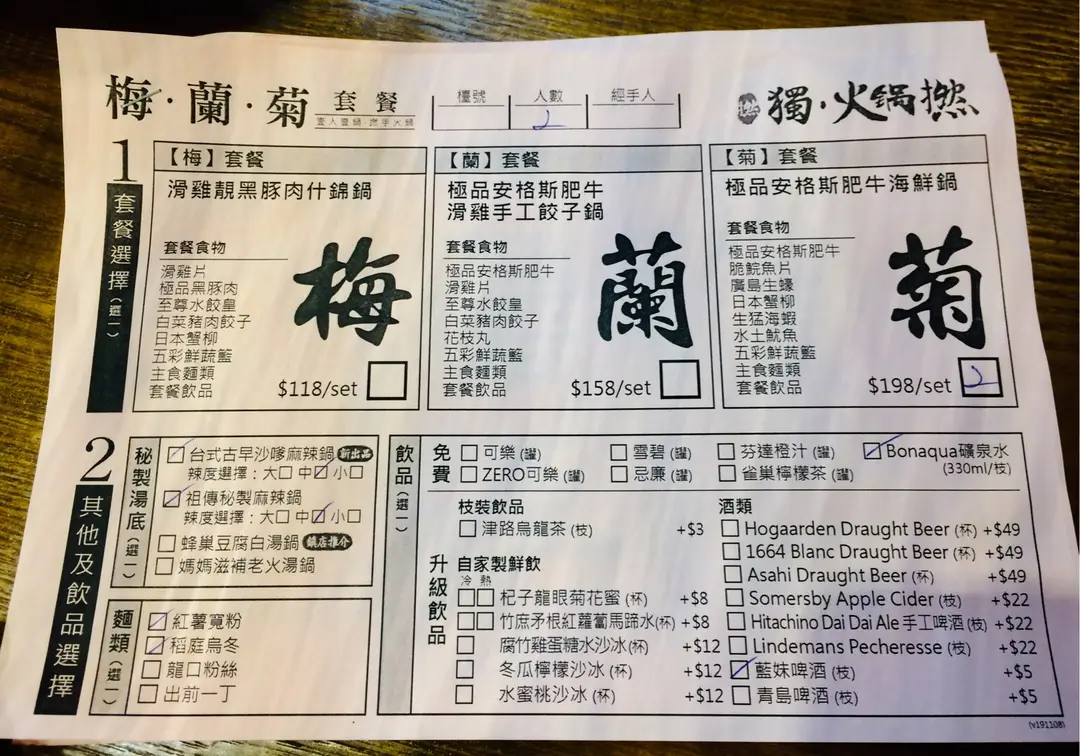 梅·蘭·菊 套餐
壹人壹鍋·拋手火鍋
檯號 人數 經手人
2
獨·火鍋撚
1 套餐選擇(選一)
【梅】套餐
滑雞靚黑豚肉什錦鍋
套餐食物
滑雞片
極品黑豚肉
至尊水餃皇
白菜豬肉餃子
日本蟹柳
五彩鮮蔬籃
主食麵類
套餐飲品
梅
$118/set
【蘭】套餐
極品安格斯肥牛
滑雞手工餃子鍋
套餐食物
極品安格斯肥牛
滑雞片
至尊水餃皇
白菜豬肉餃子
花枝丸
五彩鮮蔬籃
主食麵類
套餐飲品
蘭
$158/set
【菊】套餐
極品安格斯肥牛海鮮鍋
套餐食物
極品安格斯肥牛
脆鯇魚片
廣島生蠔
日本蟹柳
生猛海蝦
水土魷魚
五彩鮮蔬籃
主食麵類
套餐飲品
菊
$198/set 2
2 其他及飲品選擇
秘製湯底(選一)
台式古早沙嗲麻辣鍋 新出品
辣度選擇:大□ 中□ 小□
祖傳秘製麻辣鍋
辣度選擇:大□ 中□ 小□
蜂巢豆腐白湯鍋 鎮店推介
媽媽滋補老火湯鍋
麵類(選一)
紅薯寬粉
稻庭烏冬
龍口粉絲
出前一丁
飲品(選一)
免費
可樂 (罐) 雪碧 (罐) 芬達橙汁 (罐) Bonaqua礦泉水
ZERO可樂 (罐) 忌廉 (罐) 雀巢檸檬茶 (罐) (330ml/枝)
升級飲品
枝裝飲品
津路烏龍茶 (枝) +$3
自家製鮮飲
冷 熱
杞子龍眼菊花蜜 (杯) +$8
竹庶矛根紅蘿蔔馬蹄水(杯) +$8
腐竹雞蛋糖水沙冰(杯) +$12
冬瓜檸檬沙冰 (杯) +$12
水蜜桃沙冰 (杯) +$12
酒類
Hogaarden Draught Beer (杯) +$49
1664 Blanc Draught Beer (杯) +$49
Asahi Draught Beer (杯) +$49
Somersby Apple Cider (枝) +$22
Hitachino Dai Dai Ale 手工啤酒 (枝) +$22
Lindemans Pecheresse (枝) +$22
藍妹啤酒 (枝) +$5
青島啤酒 (枝) +$5
(v191108)